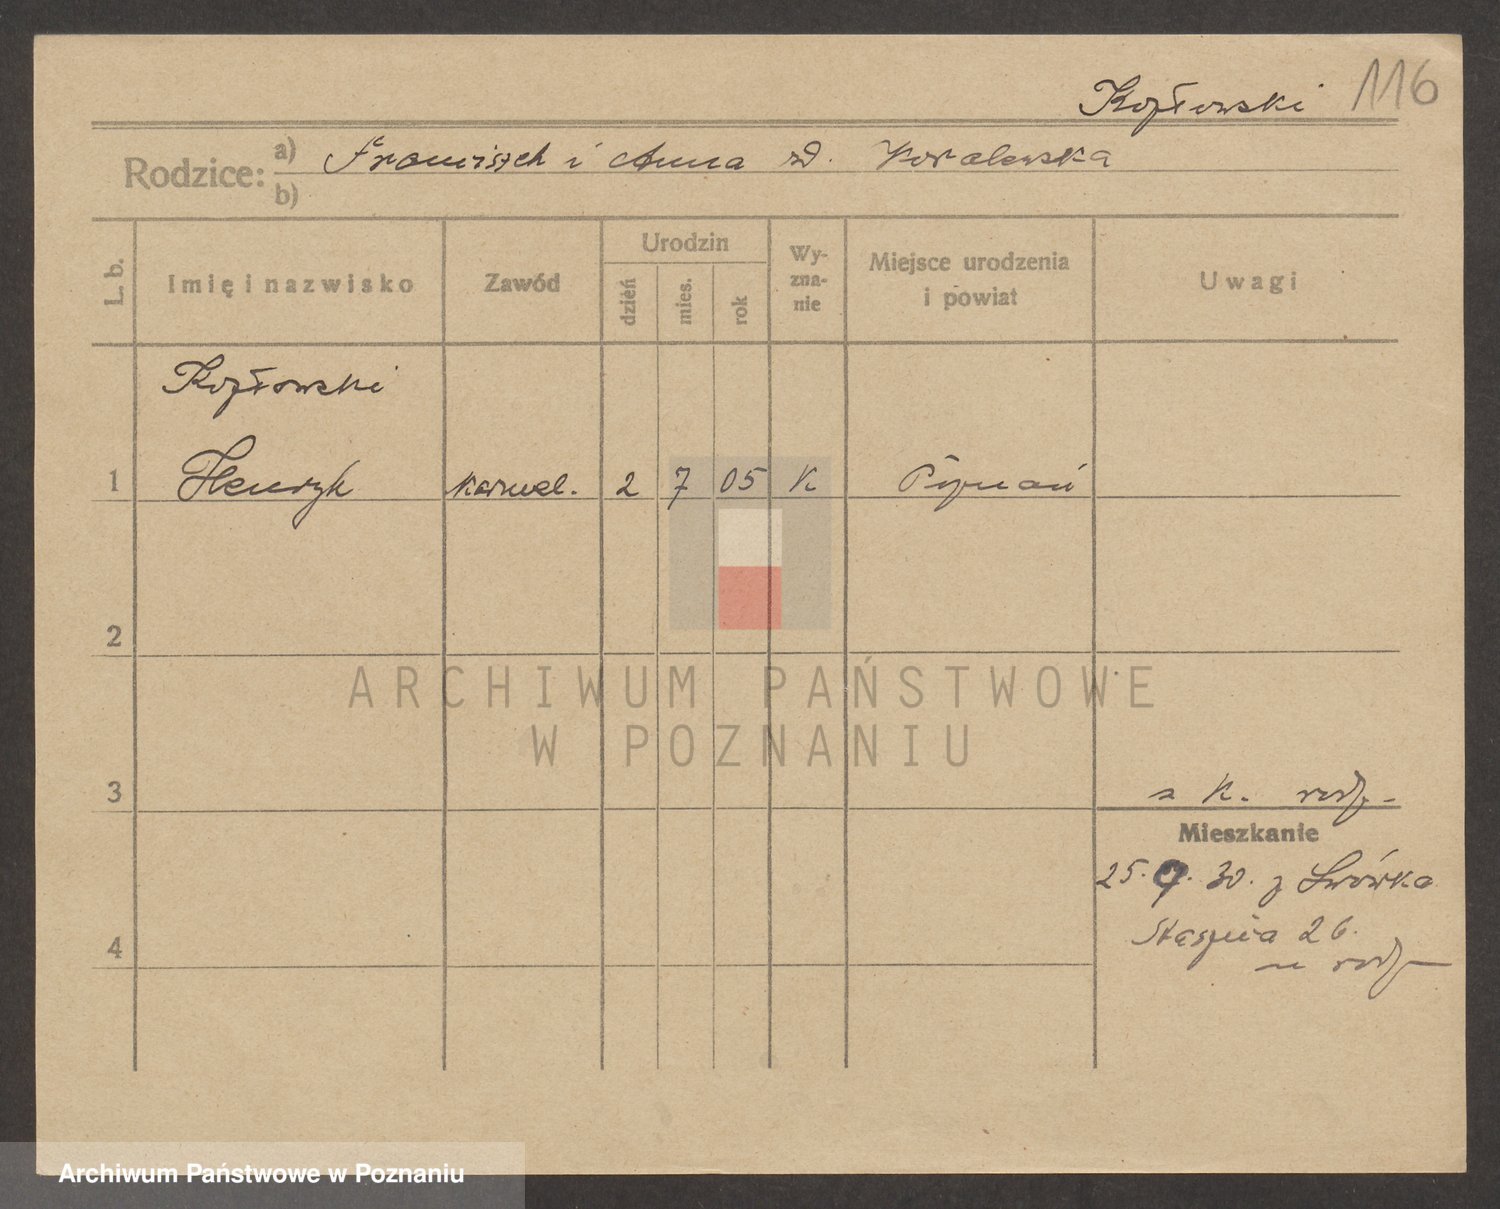 Kozłowski 116
Rodzice: a) Franciszek i Anna zd. Kowalewska
b)
L. b. Imię i nazwisko Zawód Urodzin dzień mies. rok Wyznanie Miejsce urodzenia i powiat Uwagi
Kozłowski
1 Henryk karmel. 2 7 05 K Poznań
2
ARCHIWUM PAŃSTWOWE
W POZNANIU
3 z K. rodz.
Mieszkanie
25. 9. 30. z Lwówka
4 Staszica 26.
u rodz.
Archiwum Państwowe w Poznaniu